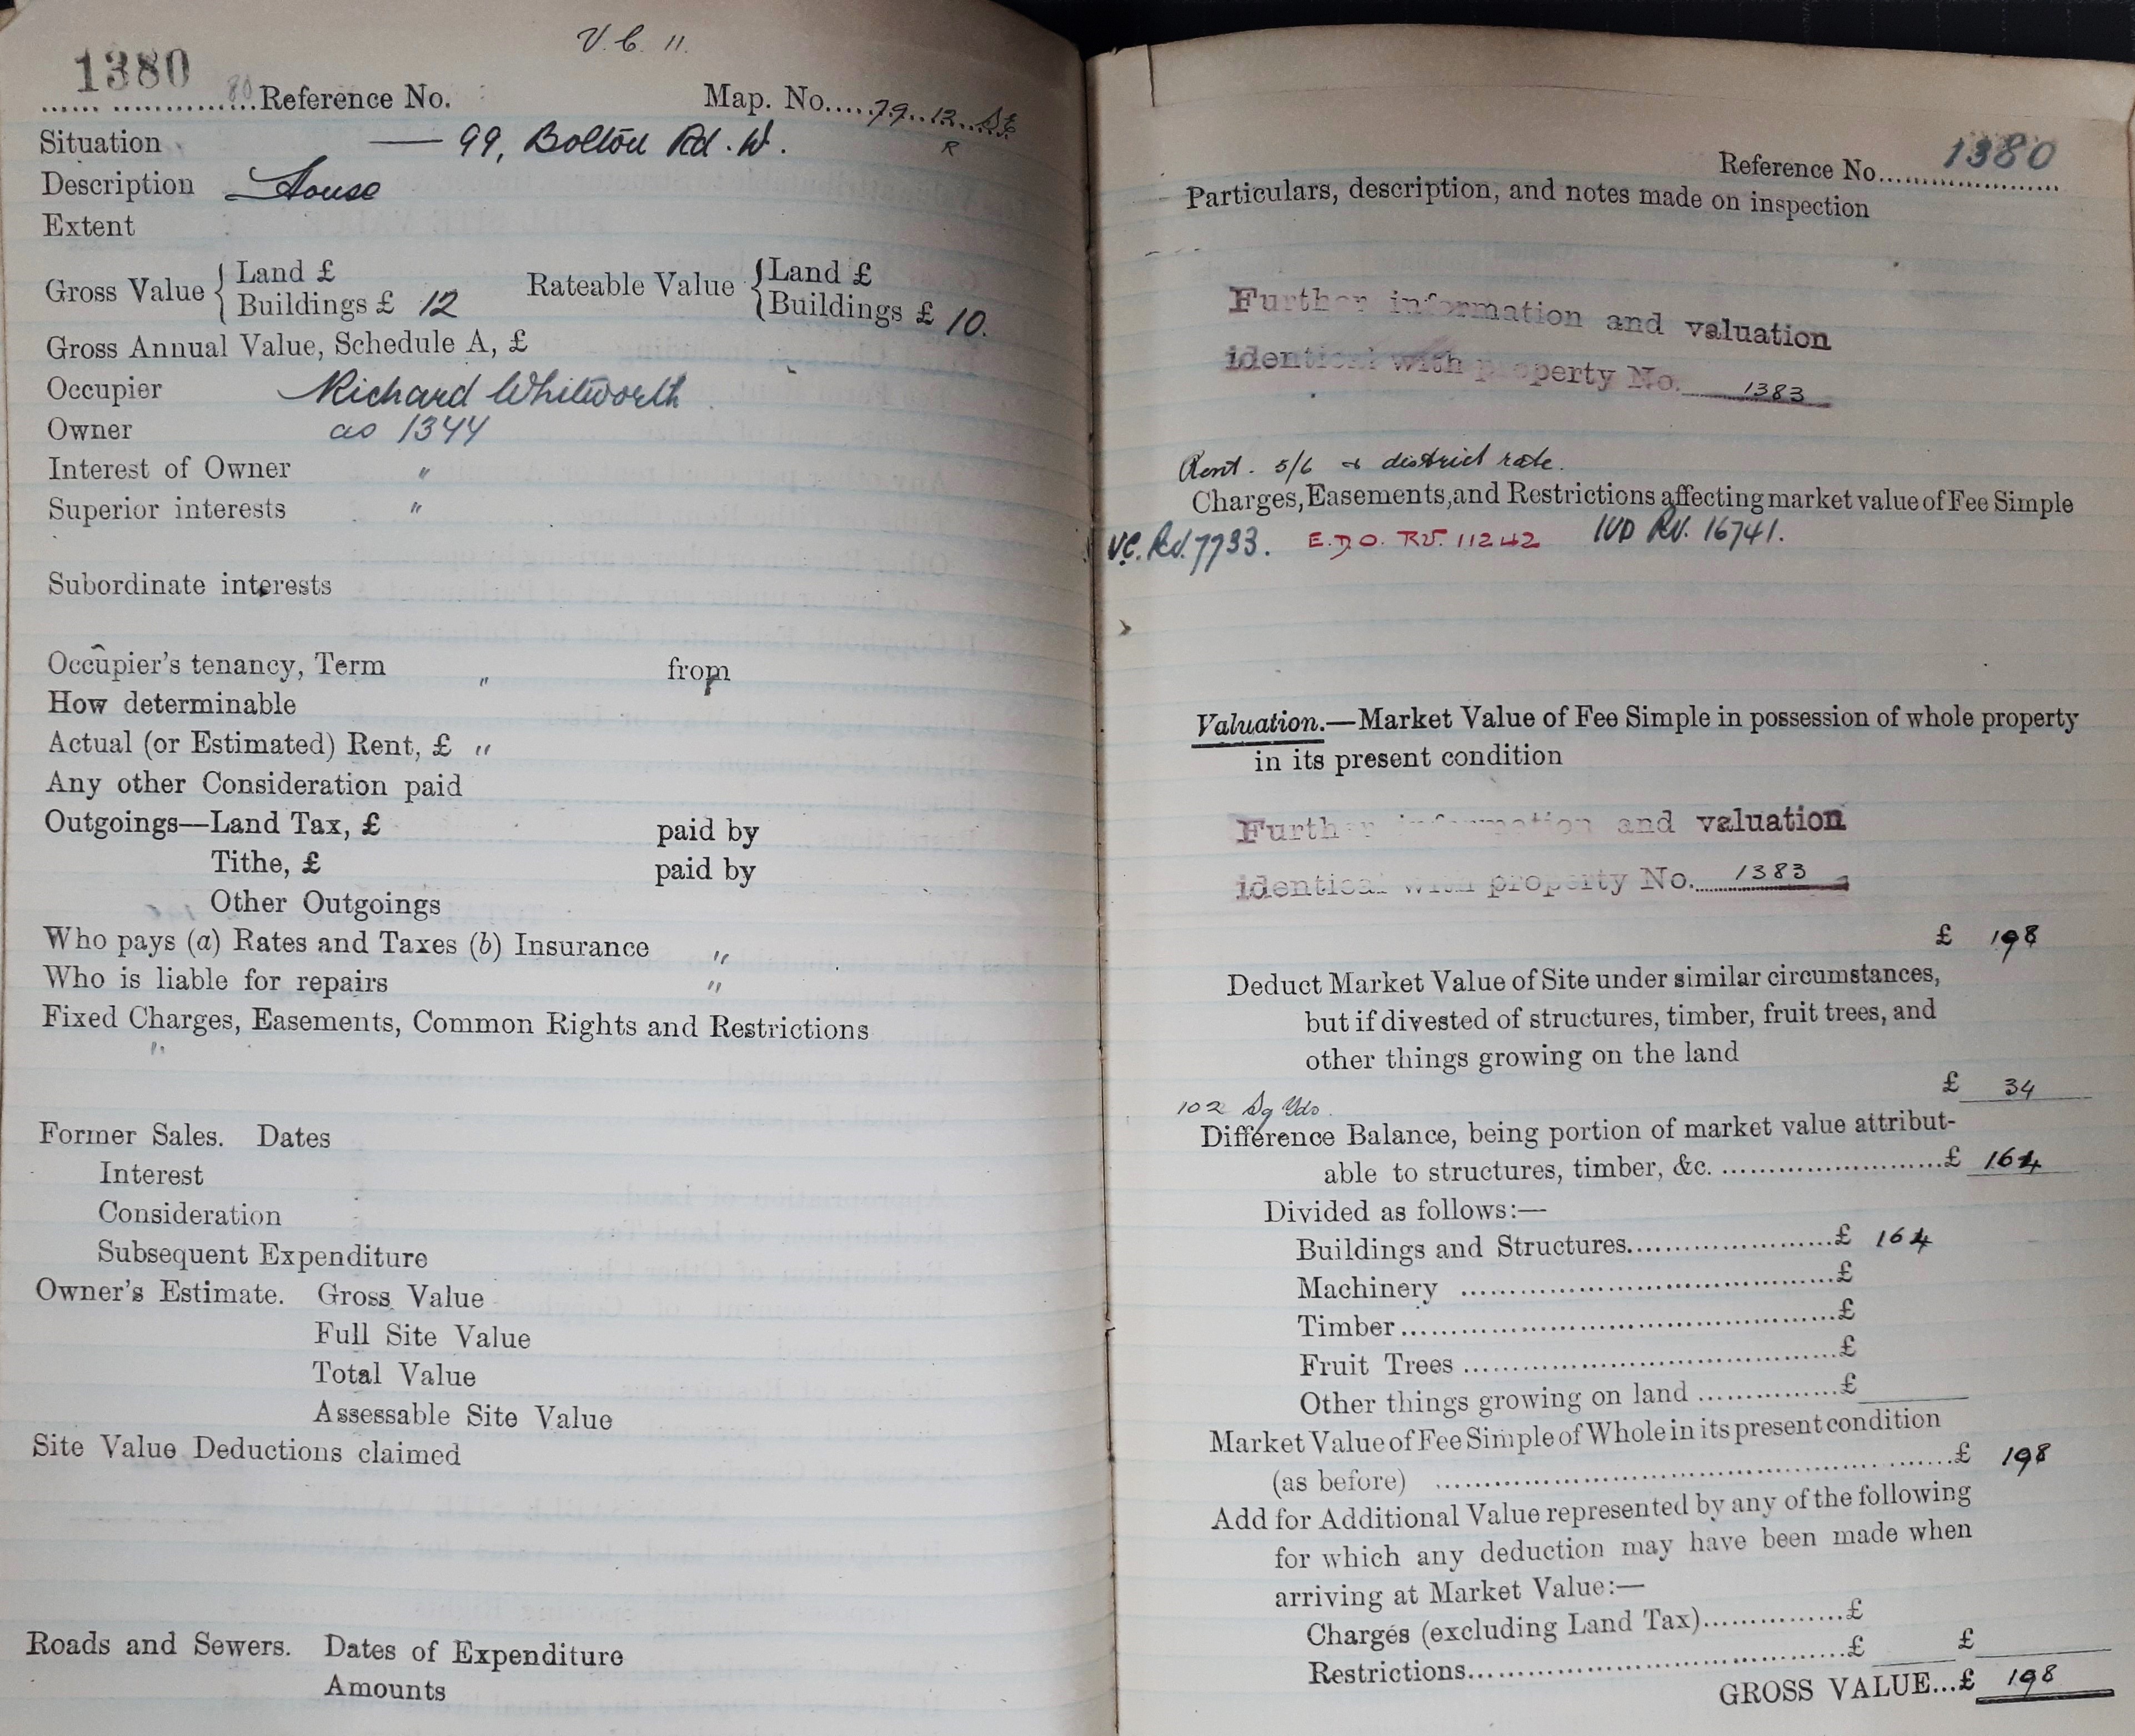 V. C. 11.
1380
Reference No. Map. No. 79. 12. SE
R
Situation — 99, Bolton Rd. W.
Description House
Extent
Gross Value { Land £ Rateable Value { Land £
Buildings £ 12 Buildings £ 10.
Gross Annual Value, Schedule A, £
Occupier Richard Whitworth
Owner as 1344
Interest of Owner "
Superior interests "
Subordinate interests
Occupier's tenancy, Term " from
How determinable
Actual (or Estimated) Rent, £ "
Any other Consideration paid
Outgoings—Land Tax, £ paid by
Tithe, £ paid by
Other Outgoings
Who pays (a) Rates and Taxes (b) Insurance "
Who is liable for repairs "
Fixed Charges, Easements, Common Rights and Restrictions
"
Former Sales. Dates
Interest
Consideration
Subsequent Expenditure
Owner's Estimate. Gross Value
Full Site Value
Total Value
Assessable Site Value
Site Value Deductions claimed
Roads and Sewers. Dates of Expenditure
Amounts
Reference No. 1380
Particulars, description, and notes made on inspection
Further information and valuation
identical with property No. 1383
Rent. 5/6 & district rate.
Charges, Easements, and Restrictions affecting market value of Fee Simple
VC. Rd. 7733. E.D.O. RV. 11242 IVD RV. 16741.
Valuation.—Market Value of Fee Simple in possession of whole property
in its present condition
Further information and valuation
identical with property No. 1383
£ 198
Deduct Market Value of Site under similar circumstances,
but if divested of structures, timber, fruit trees, and
other things growing on the land
£ 34
102 Sq Yds.
Difference Balance, being portion of market value attribut-
able to structures, timber, &c. £ 164
Divided as follows:—
Buildings and Structures £ 164
Machinery £
Timber £
Fruit Trees £
Other things growing on land £
Market Value of Fee Simple of Whole in its present condition
(as before) £ 198
Add for Additional Value represented by any of the following
for which any deduction may have been made when
arriving at Market Value:—
Charges (excluding Land Tax) £
Restrictions £ £
GROSS VALUE...£ 198